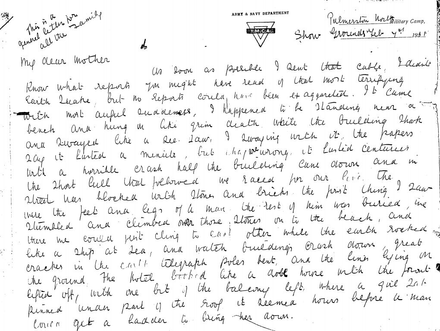 This is a
general letter for
all the family
ARMY & NAVY DEPARTMENT
Y.M.C.A.
Palmerston North Military Camp,
Show Grounds Feb 7th
My dear Mother
As soon as possible I sent that cable, I didn't
know what reports you might have read of that most terrifying
Earth Quake but no reports could have been exaggerated. It came
with most awful suddenness, I happened to be standing near a
bench and hung on like grim death while the building shook
and swayed like a see-saw, I swaying with it, the papers
say it lasted a minute, but they're wrong, it lasted centuries
with a horrible crash half the building came down and in
the short lull that followed we raced for our lives. The
street was blocked with stones and bricks the first thing I saw
were the feet and legs of a man the rest of him was buried, we
stumbled and climbed over those stones on to the beach, and
there we could just cling to each other while the earth rocked
like a ship at sea, and watch buildings crash down, great
cracks in the earth telegraph poles bent, and the lines lying on
the ground. The hotel looked like a doll house with the front
lifted off, with one bit of the balcony left where a girl sat
pinned under part of the roof it seemed hours before a man
could get a ladder to bring her down.